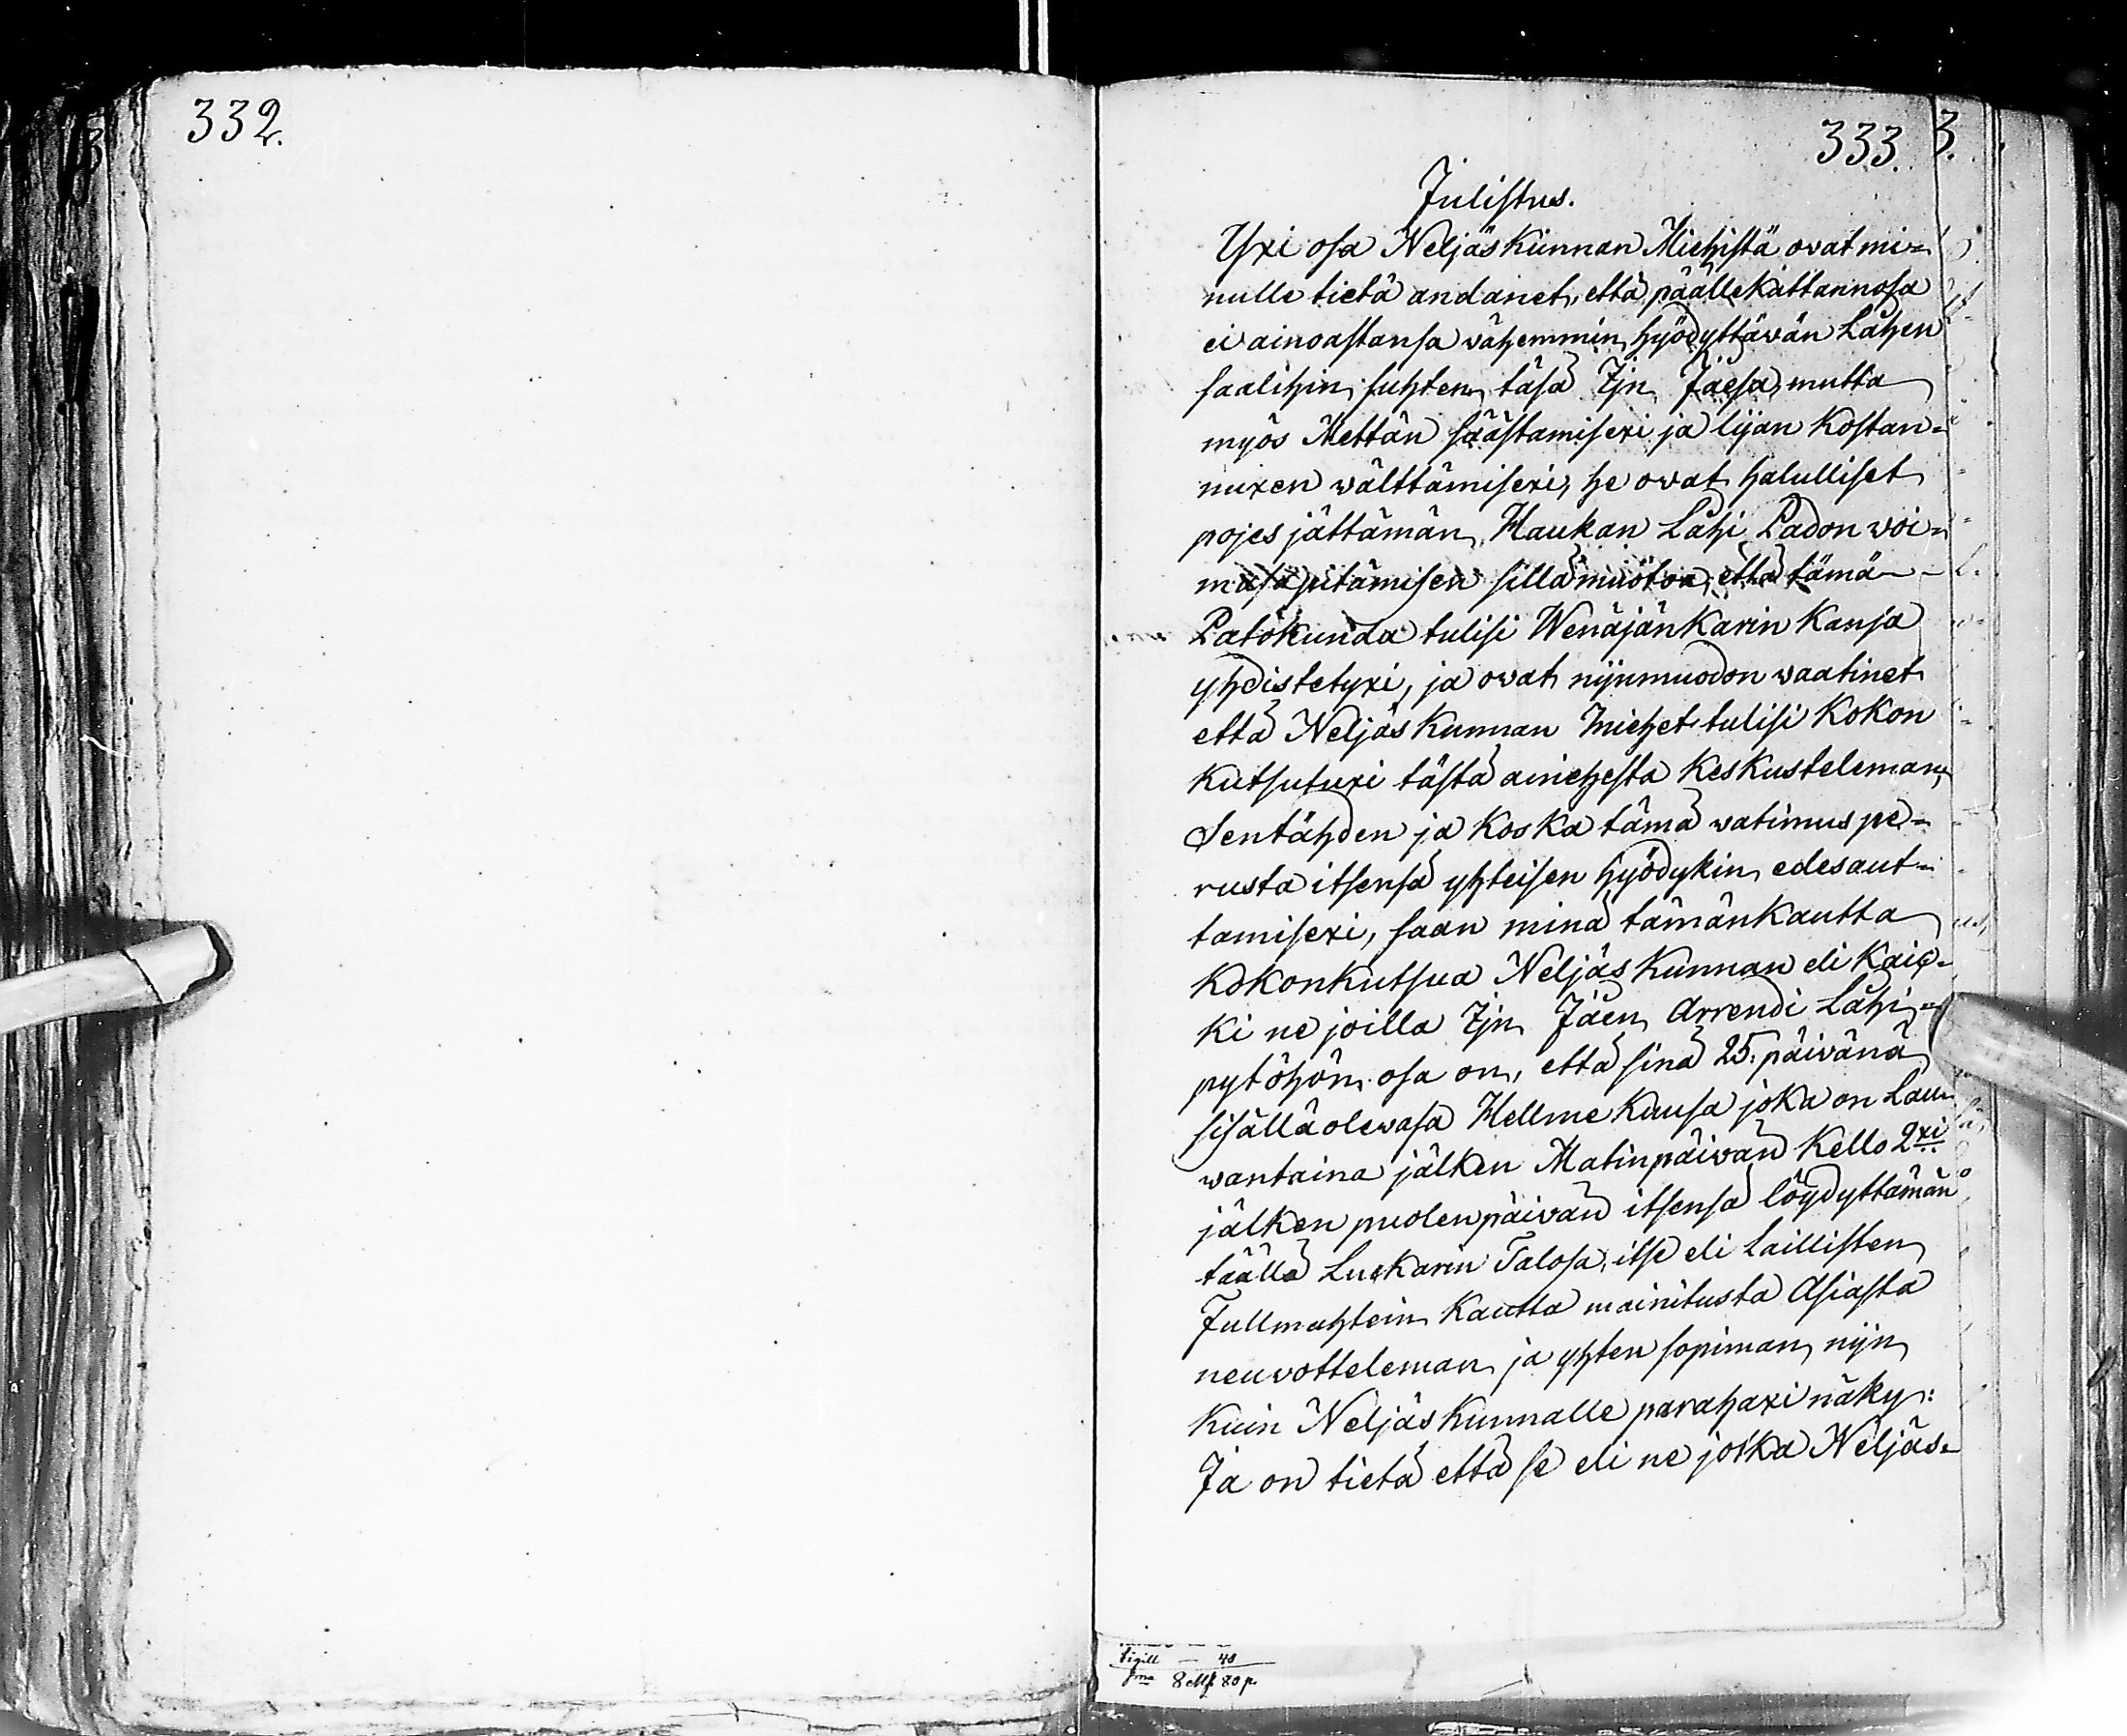 332.
333.
3.
Julistus.
Yxi osa Neljäskunnan Miehistä ovat mi=
nulle tietä andanet, että päällekattannosa
ei ainoastansa vähemmin hyödyttävän Lohen
saalihin suhten täsä Ijn Joesa, mutta
myös Mettän säästamisexi ja lijan Kostan=
nuxen wälttämisexi, he ovat halulliset
pojes jättämän Haukan Lohi Padon woi=
masapitämisen sillä muotoa, että tämä
Patokunda tulisi Wenäjänkarin Kansa
yhdistetyxi, ja ovat nijnmuodon waatinet
että Neljäs Kunnan Miehet tulisi Kokon
Kutsutuxi tästä ainehesta Keskusteleman,
Sentähden ja Koska tämä watimus pe=
rusta itsensä yhteisen hyödykin edesaut=
tamisexi, saan minä tämänkautta
Kokonkutsua Neljäs Kunnan eli Kaic=
Ki ne joilla Ijn Joen Arrendi Lohi=
pytöhön osa on, että sinä 25. päivänä
sisälläolewasa Hellme Kuusa joka on Lau=
wantaina jälken Matinpäivän Kello 2xi
jälken puolenpäivän itsensä löydyttämän
täällä Luskarin Talosa, itse eli Laillisten
Fullmahtein Kautta mainitusta Asiasta
neuvotteleman ja yhten sopiman, nijn
Kuin Neljäs Kunnalle parahaxi näky:
Ja on tietä että se eli ne jotka Neljäs=
Sigill — 40
Sma 8 Mf 80 p.